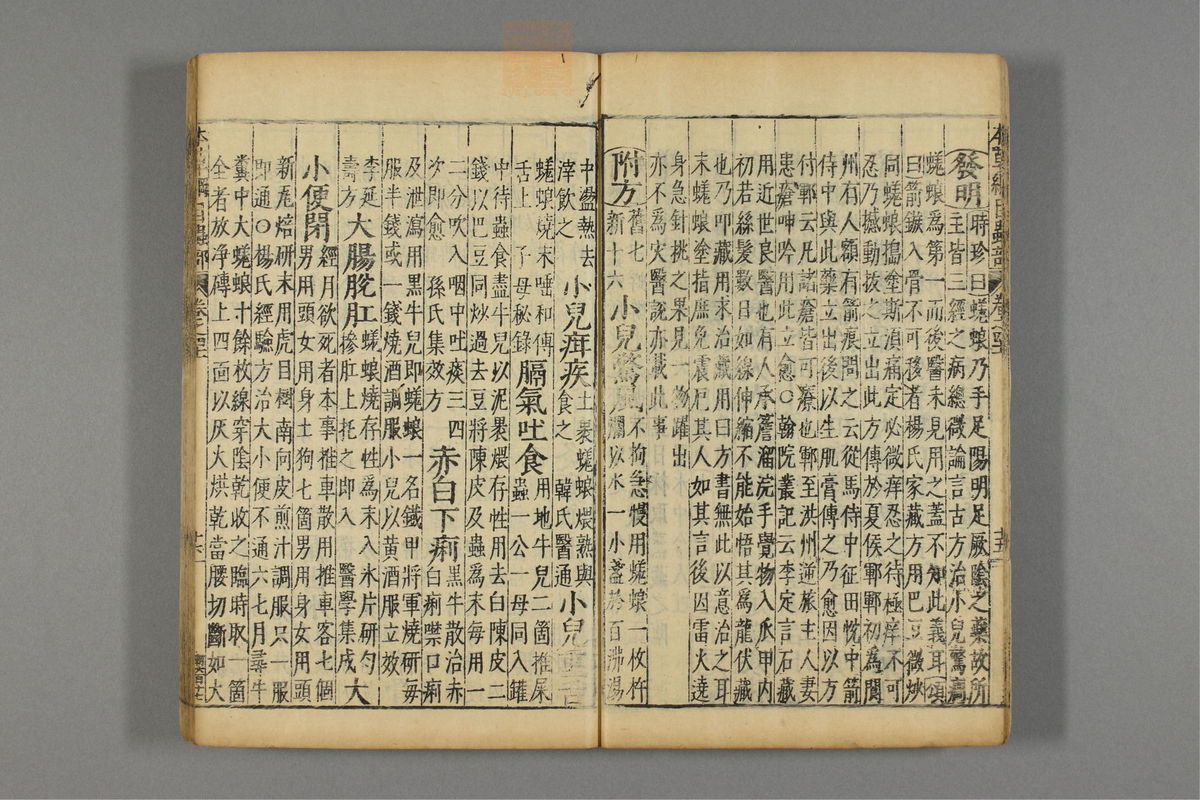 發明時珍曰蜣蜋乃手足陽明足厥陰之藥故所
主皆三經之病總微論言古方治小兒驚癎
蜣蜋爲第一而後醫未見用之蓋不知此義耳頌
曰箭鏃入骨不可移者楊氏家藏方用巴豆微炒
同蜣蜋搗塗斯須痛定必微痒忍之待極痒不可
忍乃撼動拔之立出此方傳於夏侯鄆鄆初爲閬
州有人額有箭痕問之云從馬侍中征田悅中箭
侍中與此藥立出後以生肌膏傅之乃愈因以方
付鄆云凡諸瘡皆可療也鄆至洪州逆旅主人妻
患瘡呻吟用此立愈〇翰院叢記云李定言石藏
用近世良醫也有人承簷溜浣手覺物入爪甲內
初若絲髮數日如線伸縮不能始悟其爲龍伏藏
也乃叩藏用求治藏用曰方書無此以意治之耳
末蜣蜋塗指庶免震厄其人如其言後因雷火遶
身急針挑之果見一物躍出
亦不爲灾醫說亦載此事
附方舊七新十六小兒驚風不拘急慢用蜣蜋一枚杵
爛以水一小盞於百沸湯
中盪熱去滓飲之小兒疳疾土裹蜣蜋煨熟與食之韓氏醫通小兒
蜣蜋燒末唾和傅舌上子母秘錄膈氣吐食用地牛兒二箇推屎蟲一公一母同入罐
中待蟲食盡牛兒以泥裹煨存性用去白陳皮二
錢以巴豆同炒過去豆將陳皮及蟲爲末每用一
二分吹入咽中吐痰三四次卽愈孫氏集效方赤白下痢黑牛散治赤白痢噤口痢
及泄瀉用黑牛兒卽蜣蜋一名鐵甲將軍燒研每
服半錢或一錢燒酒調服小兒以黃酒服立效
李延壽方大腸脫肛蜣蜋燒存性爲末入氷片研勻摻肛上托之卽入醫學集成大
小便閉經月欲死者本事推車散用推車客七個男用頭女用身土狗七箇男用身女用頭
新瓦焙研末用虎目樹南向皮煎汁調服只一服
卽通〇楊氏經驗方治大小便不通六七月尋牛
糞中大蜣蜋十餘枚線穿陰乾收之臨時取一箇
全者放淨磚上四面以灰火烘乾當腰切斷如大